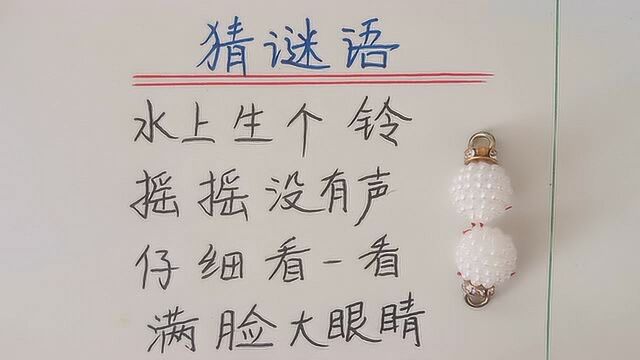 猜谜语
水上生个铃
摇摇没有声
仔细看一看
满脸大眼睛